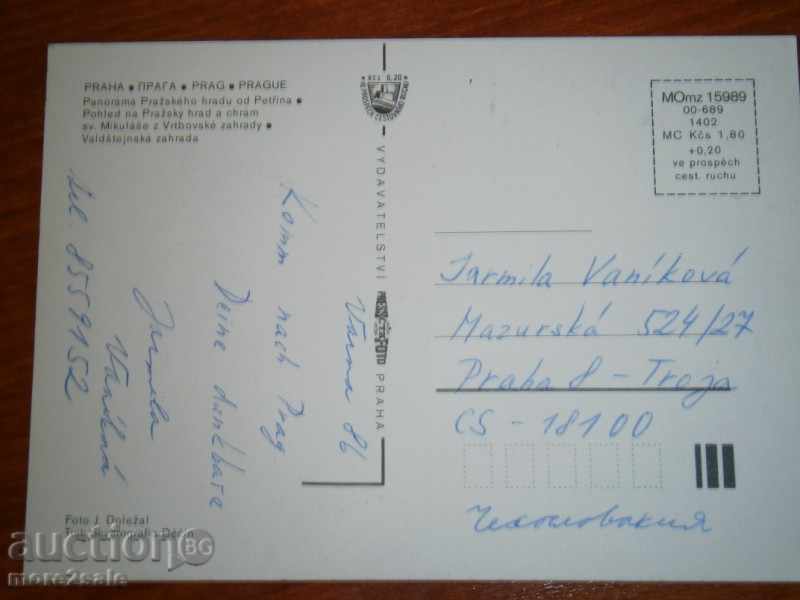 PRAHA • ПРАГА • PRAG • PRAGUE
Panorama Pražského hradu od Petřína •
Pohled na Pražský hrad a chrám
sv. Mikuláše z Vrtbovské zahrady •
Valdštejnská zahrada
VYDAVATELSTVÍ PRESSFOTO PRAHA
MOmz 15989
00-689
1402
MC Kčs 1,80
+0,20
ve prospěch
cest. ruchu
Varna 86
Komm nach Prag
Deine dankbare
Jarmila
Vaníková
tel. 8559152
Jarmila Vaníková
Mazurská 524/27
Praha 8 - Troja
CS - 18100
Чехословакия
Foto J. Doležal
auction BG
more2sale